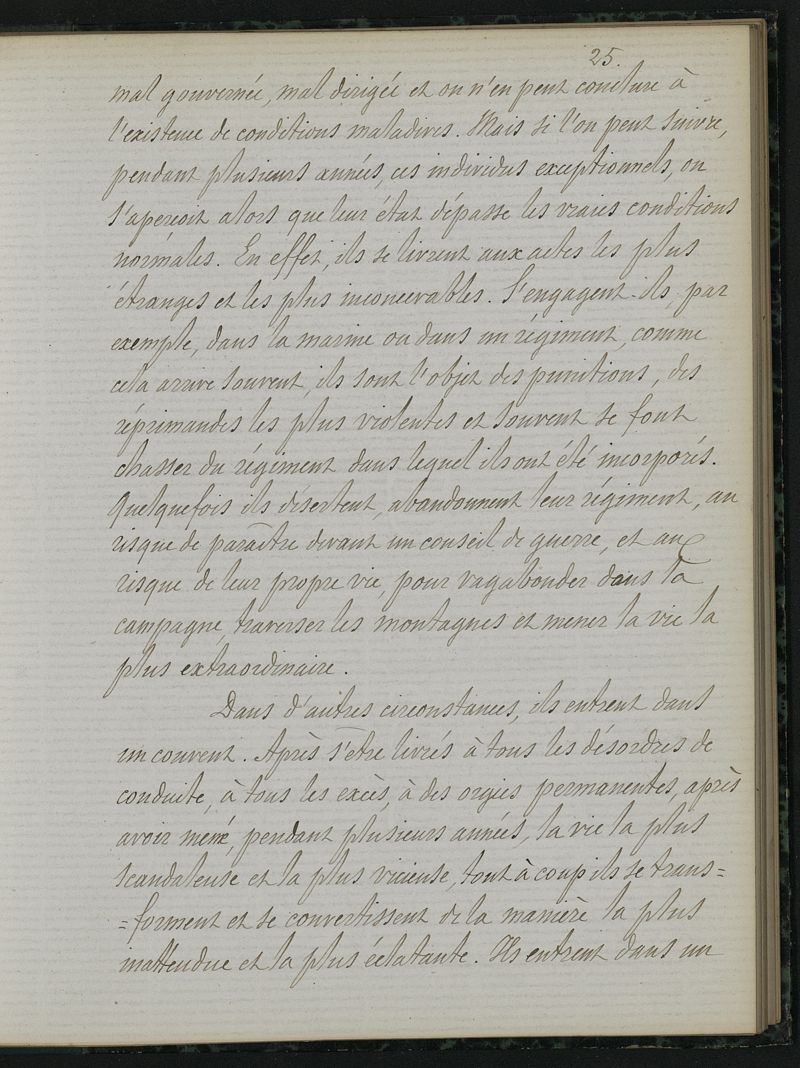 25.
mal gouvernée, mal dirigée et on n'en peut conclure à
l'existence de conditions maladives. Mais si l'on peut suivre,
pendant plusieurs années, ces individus exceptionnels, on
s'aperçoit alors que leur état dépasse les vraies conditions
normales. En effet, ils se livrent aux actes les plus
étranges et les plus inconcevables. S'engagent-ils, par
exemple, dans la marine ou dans un régiment, comme
cela arrive souvent, ils sont l'objet des punitions, des
réprimandes les plus violentes et souvent se font
chasser du régiment dans lequel ils ont été incorporés.
Quelquefois ils désertent, abandonnent leur régiment, au
risque de paraître devant un conseil de guerre, et au
risque de leur propre vie, pour vagabonder dans la
campagne, traverser les montagnes et mener la vie la
plus extraordinaire.
Dans d'autres circonstances, ils entrent dans
un couvent. Après s'être livrés à tous les désordres de
conduite, à tous les excès, à des orgies permanentes, après
avoir mené, pendant plusieurs années, la vie la plus
scandaleuse et la plus vicieuse, tout à coup ils se trans=
=forment et se convertissent de la manière la plus
inattendue et la plus éclatante. Ils entrent dans un